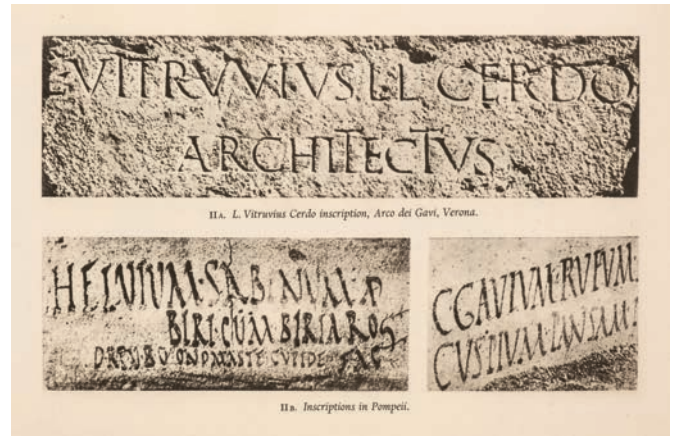 L·VITRVVIVS·L·L·CERDO
ARCHITECTVS
IIA. L. Vitruvius Cerdo inscription, Arco dei Gavi, Verona.
HELVIVM·SABINVM·
BIRI·CVM BIRIA ROG
ONOMASTE FAC
C GAVIVM·RVFVM·
IIB. Inscriptions in Pompeii.